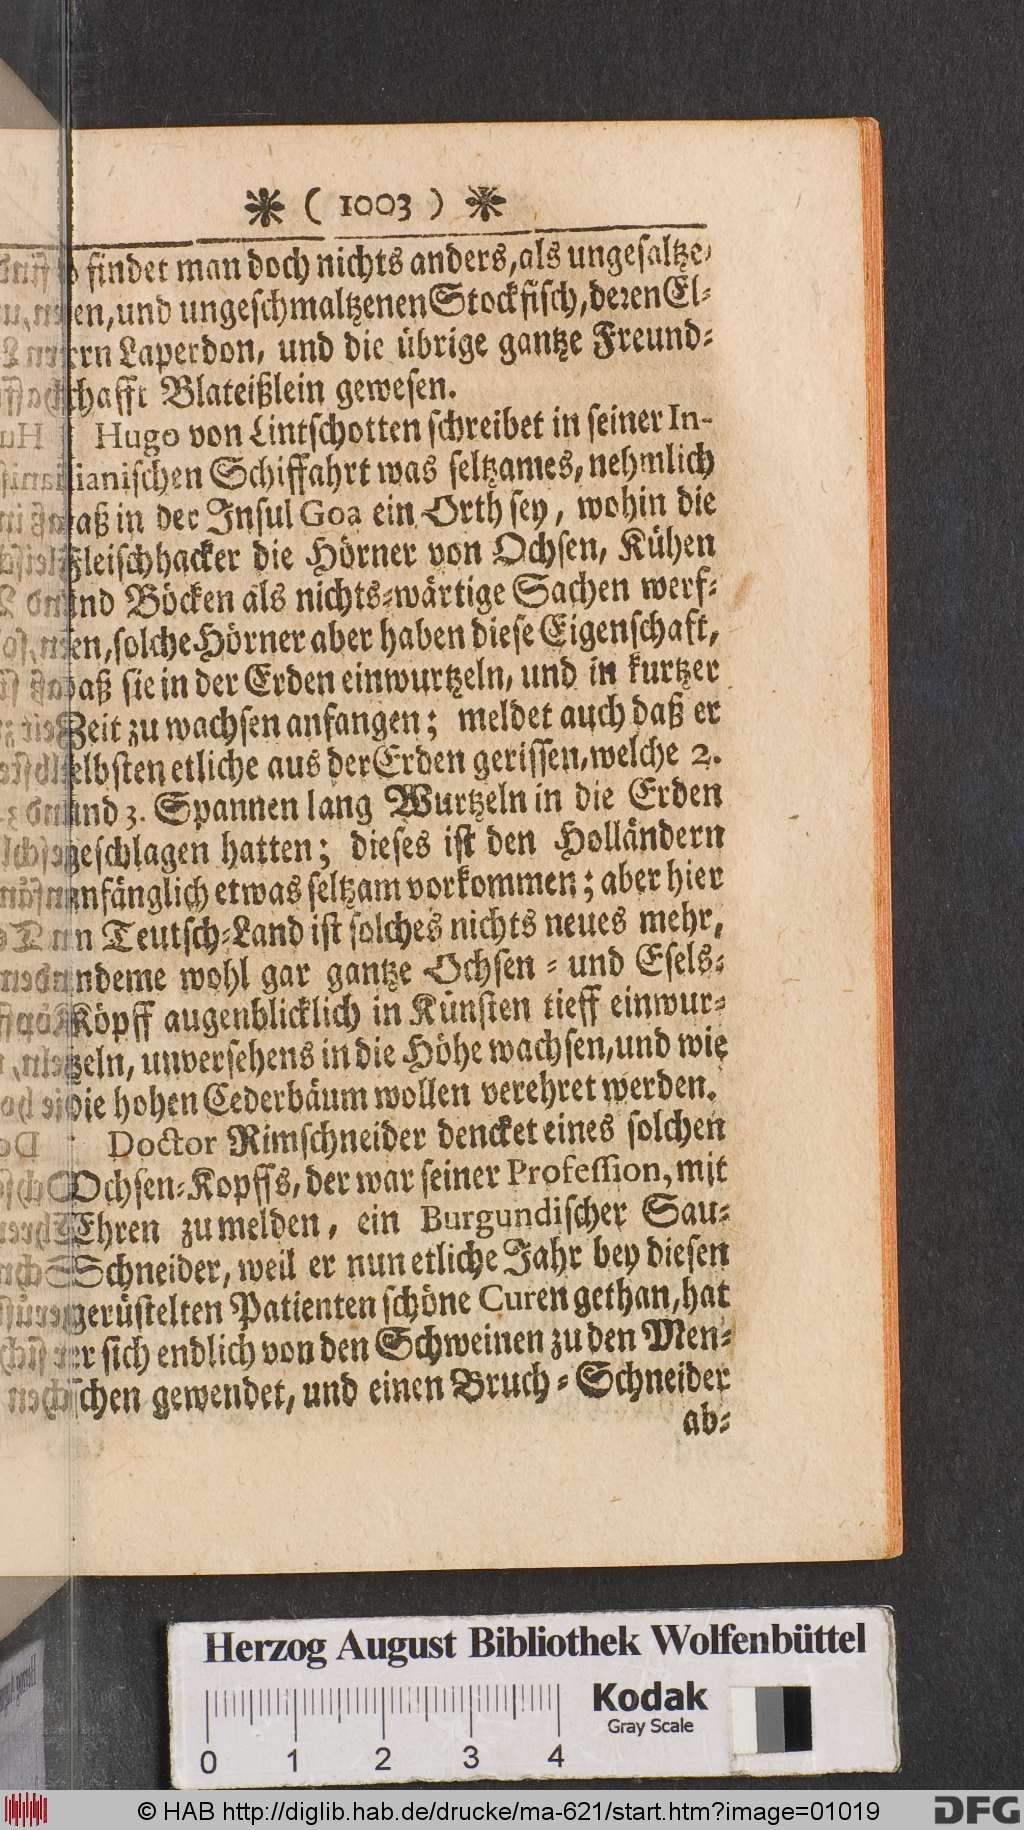 ❋ ( 1003 ) ❋
so findet man doch nichts anders, als ungesaltze-
nen, und ungeschmaltzenen Stockfisch, deren El-
tern Laperdon, und die übrige gantze Freund-
schafft Blateißlein gewesen.
Hugo von Lintschotten schreibet in seiner In-
dianischen Schiffahrt was seltzames, nehmlich
daß in der Insul Goa ein Orth sey, wohin die
Fleischhacker die Hörner von Ochsen, Kühen
und Böcken als nichts-wärtige Sachen werf-
fen, solche Hörner aber haben diese Eigenschaft,
daß sie in der Erden einwurtzeln, und in kurtzer
Zeit zu wachsen anfangen; meldet auch daß er
selbsten etliche aus der Erden gerissen, welche 2.
und 3. Spannen lang Wurtzeln in die Erden
geschlagen hatten; dieses ist den Holländern
anfänglich etwas seltzam vorkommen; aber hier
in Teutsch-Land ist solches nichts neues mehr,
indeme wohl gar gantze Ochsen- und Esels-
Köpff augenblicklich in Künsten tieff einwur-
tzeln, unversehens in die Höhe wachsen, und wie
die hohen Cederbäum wollen verehret werden.
Doctor Rimschneider dencket eines solchen
Ochsen-Kopffs, der war seiner Profession, mit
Ehren zu melden, ein Burgundischer Sau-
Schneider, weil er nun etliche Jahr bey diesen
gerüstelten Patienten schöne Curen gethan, hat
er sich endlich von den Schweinen zu den Men-
schen gewendet, und einen Bruch-Schneider
ab-
Herzog August Bibliothek Wolfenbüttel
Kodak
Gray Scale
0 1 2 3 4
© HAB http://diglib.hab.de/drucke/ma-621/start.htm?image=01019
DFG